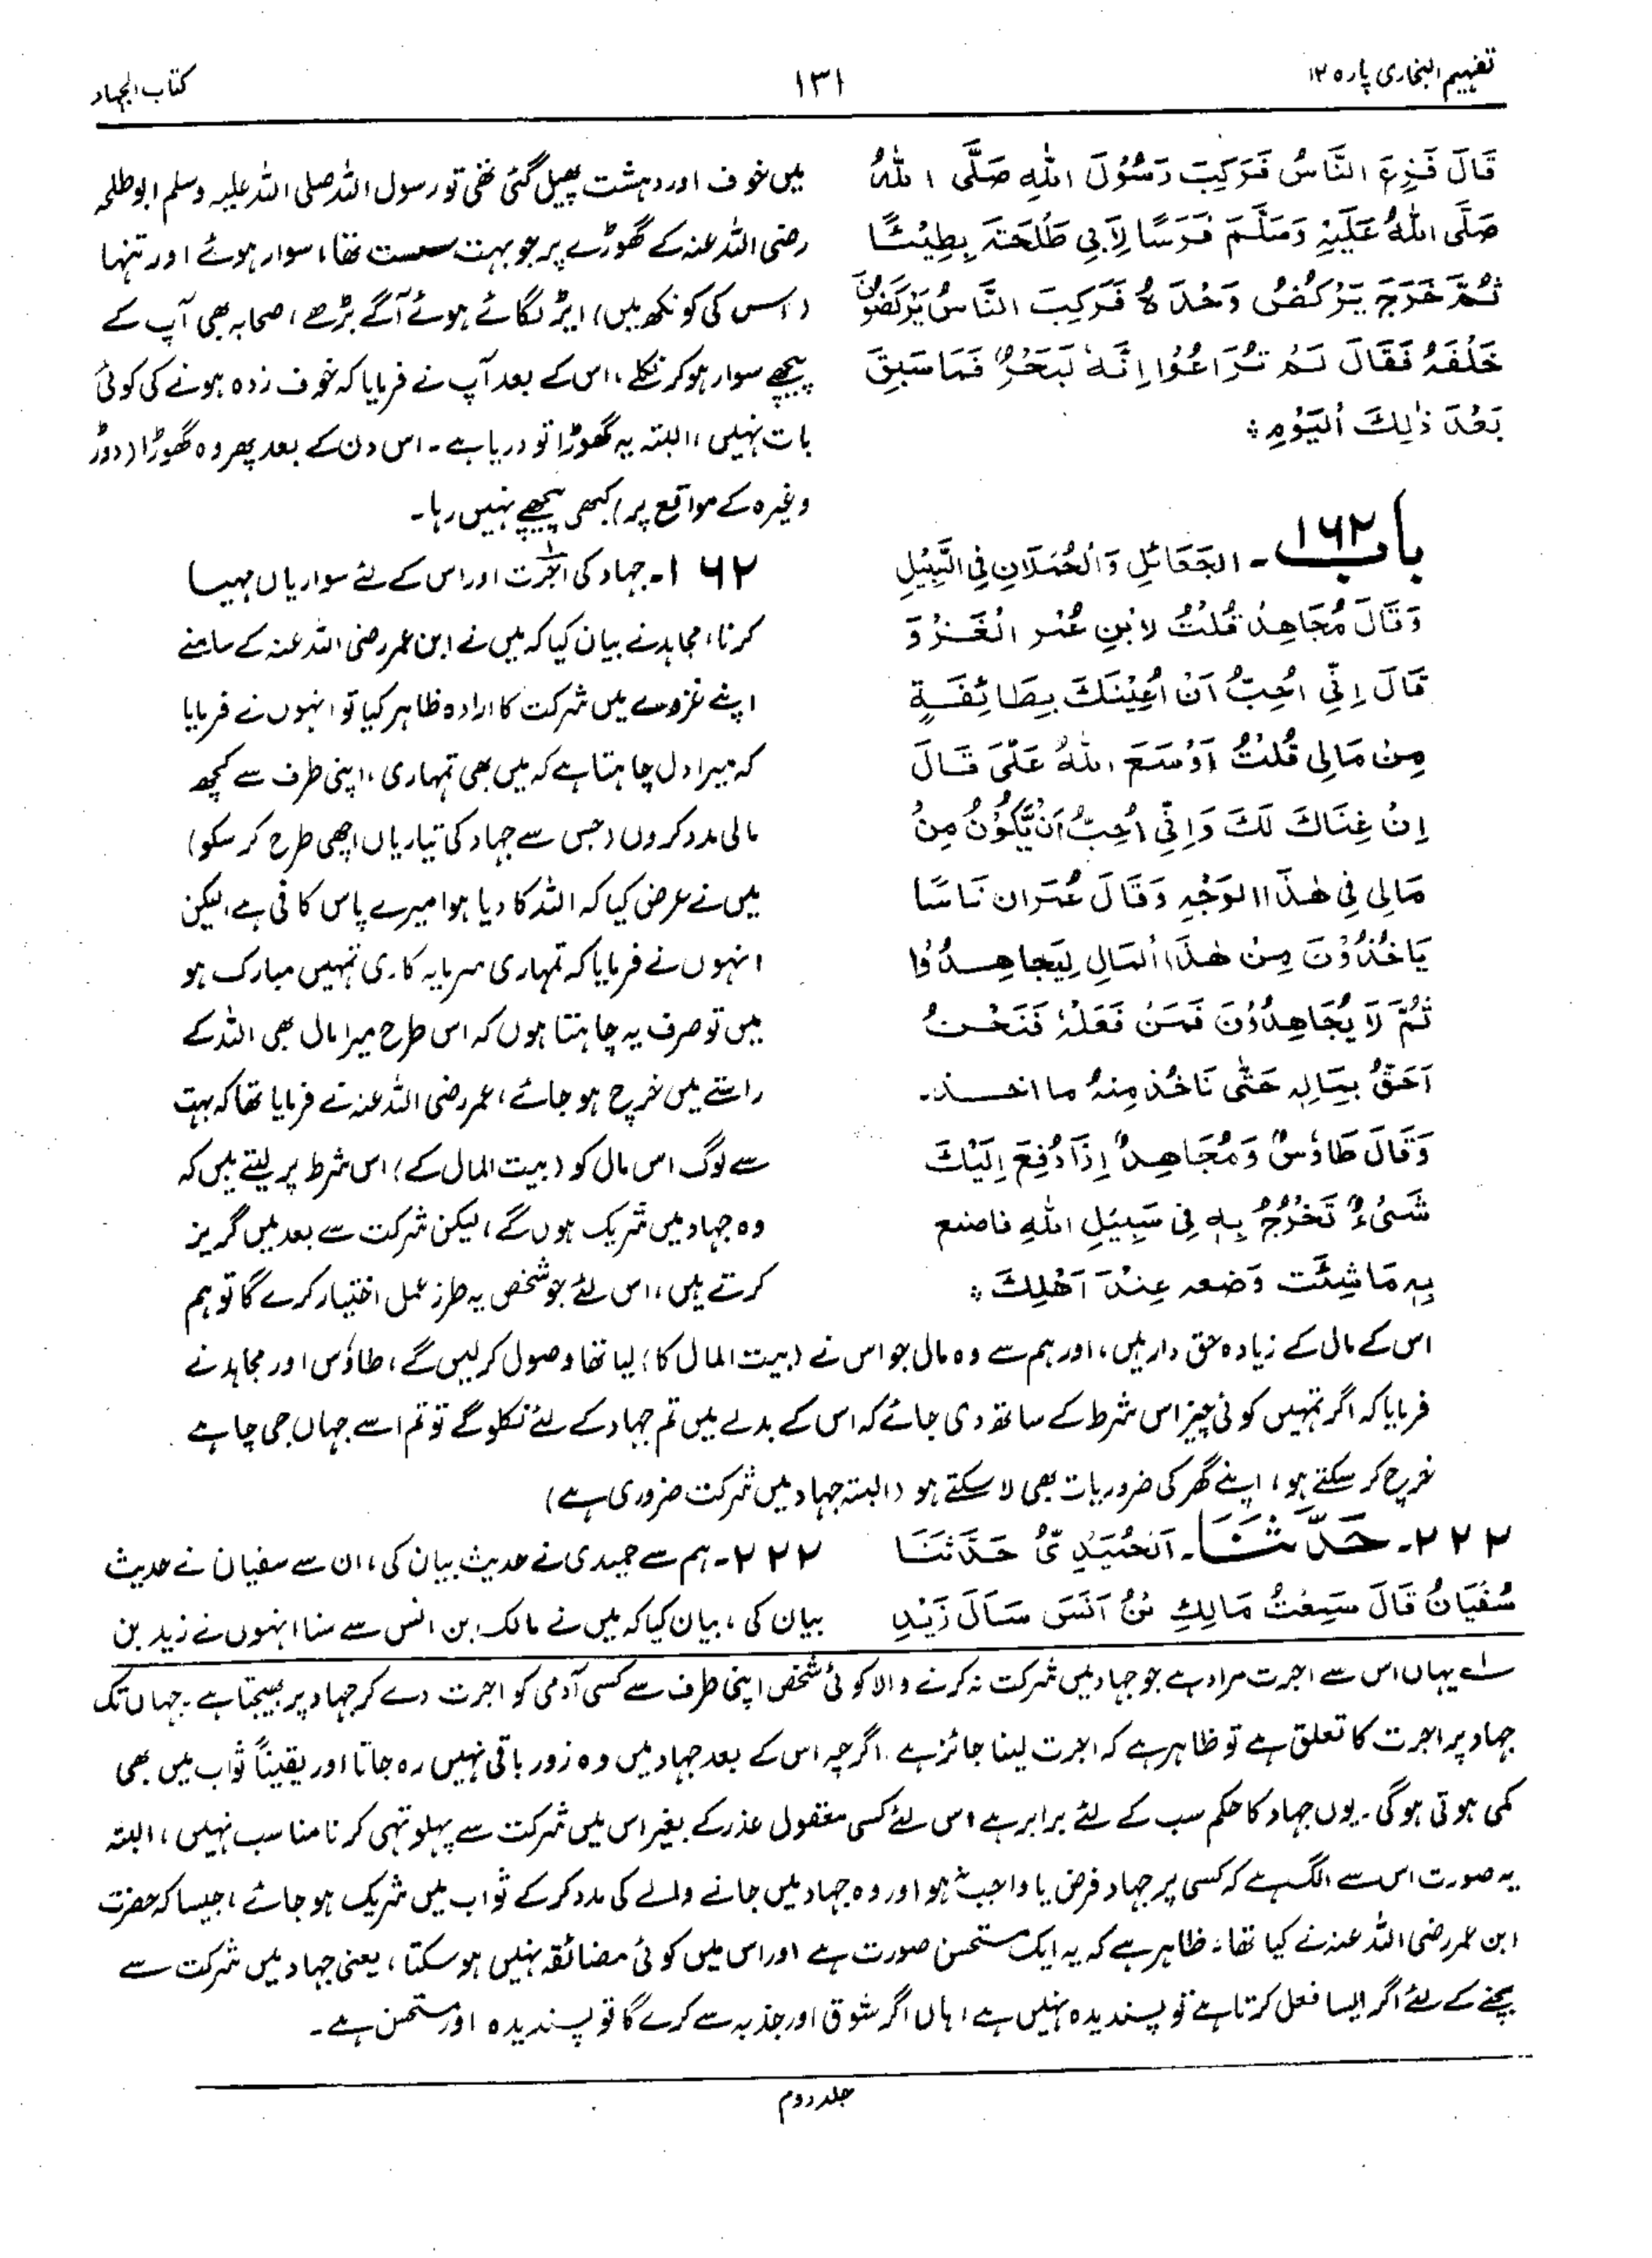 تفہیم البخاری پارہ ۱۲
۱۳۱
کتاب الجہاد
قَالَ فَزِعَ النَّاسُ فَرَكِبَ رَسُوْلَ اللهِ صَلَّى اللهُ
صَلَّى اللهُ عَلَيْهِ وَسَلَّمَ فَرَسًا لِاَبِي طَلْحَتَہ بِطِيْئًا
ثُمَّ خَرَجَ يَرْكُضُ وَحْدَهُ فَرَكِبَ النَّاسُ يَرْكَضُوْنَ
خَلْفَهُ فَقَالَ لَمْ تُرَاعُوْا اِنَّهٗ لَبَحْرٌ فَمَا سَبِقَ
بَعْدَ ذٰلِكَ الْيَوْمِ ؞
میں خوف اور دہشت پھیل گئی تھی تو رسول اللہ صلی اللہ علیہ وسلم ابو طلحہ
رضی اللہ عنہ کے گھوڑے پر جو بہت سست تھا، سوار ہوئے اور تنہا
(اس کی کونکھ میں) ایڑ لگائے ہوئے آگے بڑھے، صحابہ بھی آپ کے
پیچھے سوار ہو کر نکلے، اس کے بعد آپ نے فرمایا کہ خوف زدہ ہونے کی کوئی
بات نہیں، البتہ یہ گھوڑا تو دریا ہے۔ اس دن کے بعد پھر وہ گھوڑا (دوڑ
وغیرہ کے مواقع پر) کبھی پیچھے نہیں رہا۔
باب ۱۶۲۔ الجَعَائلِ وَالْحُمْلَانِ فِي السَّبِيْلِ
وَقَالَ مُجَاهِدٌ قُلْتُ لابْنِ عُمَر الْغَزْوَ
قَالَ اِنِّي اُحِبُّ اَنْ اُعِيْنَكَ بِطَائِفَةٍ
مِنْ مَالِی قُلْتُ اَوْسَعَ اللهُ عَلَيَّ قَالَ
اِنْ غِنَاكَ لَكَ وَاِنِّي اُحِبُّ اَنْ يَّكُوْنُ مِنْ
مَالِی فِي هٰذَا الوَجْهِ وَقَالَ عُمَران نَاسًا
يَاخُذُوْنَ مِنْ هٰذَا الْمَالِ لِيُجاهِدُوْا
ثُمَّ لَا يُجَاهِدُوْنَ فَمَنْ فَعَلَهٗ فَنَحْنُ
اَحَقُّ بِمَالِهٖ حَتّٰى نَاخُذ مِنهُ ما اخذ۔
وَقَالَ طَاوٗسٌ وَمُجَاهِدٌ اِذَا دُفِعَ اِلَيْكَ
شَیْءٌ تَخْرُجُ بِهٖ فِي سَبِيْلِ اللهِ فاصنع
بِهٖ مَا شِئْت وَضعہ عِنْدَ اَهْلِكَ ؞
۱۶۲۔ جہاد کی اجرت اور اس کے لئے سواریاں مہیا
کرنا، مجاہد نے بیان کیا کہ میں نے ابن عمر رضی اللہ عنہ کے سامنے
اپنے غزوے میں شرکت کا ارادہ ظاہر کیا تو انہوں نے فرمایا
کہ میرا دل چاہتا ہے کہ میں بھی تمہاری، اپنی طرف سے کچھ
مالی مدد کروں (جس سے جہاد کی تیاریاں اچھی طرح کر سکو)
میں نے عرض کیا کہ اللہ کا دیا ہوا میرے پاس کافی ہے، لیکن
انہوں نے فرمایا کہ تمہاری سرمایہ کاری تمہیں مبارک ہو
میں تو صرف یہ چاہتا ہوں کہ اس طرح میرا مال بھی اللہ کے
راستے میں خرچ ہو جائے، عمر رضی اللہ عنہ نے فرمایا تھا کہ بہت
سے لوگ اس مال کو (بیت المال کے) اس شرط پر لیتے ہیں کہ
وہ جہاد میں شریک ہوں گے، لیکن شرکت سے بعد میں گریز
کرتے ہیں، اس لئے جو شخص یہ طرز عمل اختیار کرے گا تو ہم
اس کے مال کے زیادہ حق دار ہیں، اور ہم سے وہ مال جو اس نے (بیت المال کا) لیا تھا وصول کرلیں گے، طاؤس اور مجاہد نے
فرمایا کہ اگر تمہیں کوئی چیز اس شرط کے ساتھ دی جائے کہ اس کے بدلے میں تم جہاد کے لئے نکلو گے تو تم اسے جہاں جی چاہے
خرچ کر سکتے ہو، اپنے گھر کی ضروریات بھی لا سکتے ہو (البتہ جہاد میں شرکت ضروری ہے)
۲۲۲۔ حَدَّثَنَا۔ اَلْحُمَيْدِيُّ حَدَّثَنَا
سُفْيَانُ قَالَ سَمِعْتُ مَالِكِ بْنُ اَنَسَ سَاَلَ زَيْدِ
۲۲۲۔ ہم سے حمیدی نے حدیث بیان کی، ان سے سفیان نے حدیث
بیان کی، بیان کیا کہ میں نے مالک بن انس سے سنا انہوں نے زید بن
۱ے یہاں اس سے اجرت مراد ہے جو جہاد میں شرکت نہ کرنے والا کوئی شخص اپنی طرف سے کسی آدمی کو اجرت دے کر جہاد پر بھیجتا ہے۔ جہاں تک
جہاد پر اجرت کا تعلق ہے تو ظاہر ہے کہ اجرت لینا جائز ہے۔ اگرچہ اس کے بعد جہاد میں وہ زور باقی نہیں رہ جاتا اور یقیناً ثواب میں بھی
کمی ہوتی ہوگی۔ یوں جہاد کا حکم سب کے لئے برابر ہے اس لئے کسی معقول عذر کے بغیر اس میں شرکت سے پہلو تہی کرنا مناسب نہیں، البتہ
یہ صورت اس سے الگ ہے کہ کسی پر جہاد فرض یا واجب ہو اور وہ جہاد میں جانے والے کی مدد کر کے ثواب میں شریک ہو جائے، جیسا کہ حضرت
ابن عمر رضی اللہ عنہ نے کیا تھا، ظاہر ہے کہ یہ ایک مستحسن صورت ہے اور اس میں کوئی مضائقہ نہیں ہو سکتا، یعنی جہاد میں شرکت سے
بچنے کے لئے اگر ایسا فعل کرتا ہے تو پسندیدہ نہیں ہے، ہاں اگر شوق اور جذبہ سے کرے گا تو پسندیدہ اور مستحسن ہے۔
جلد دوم